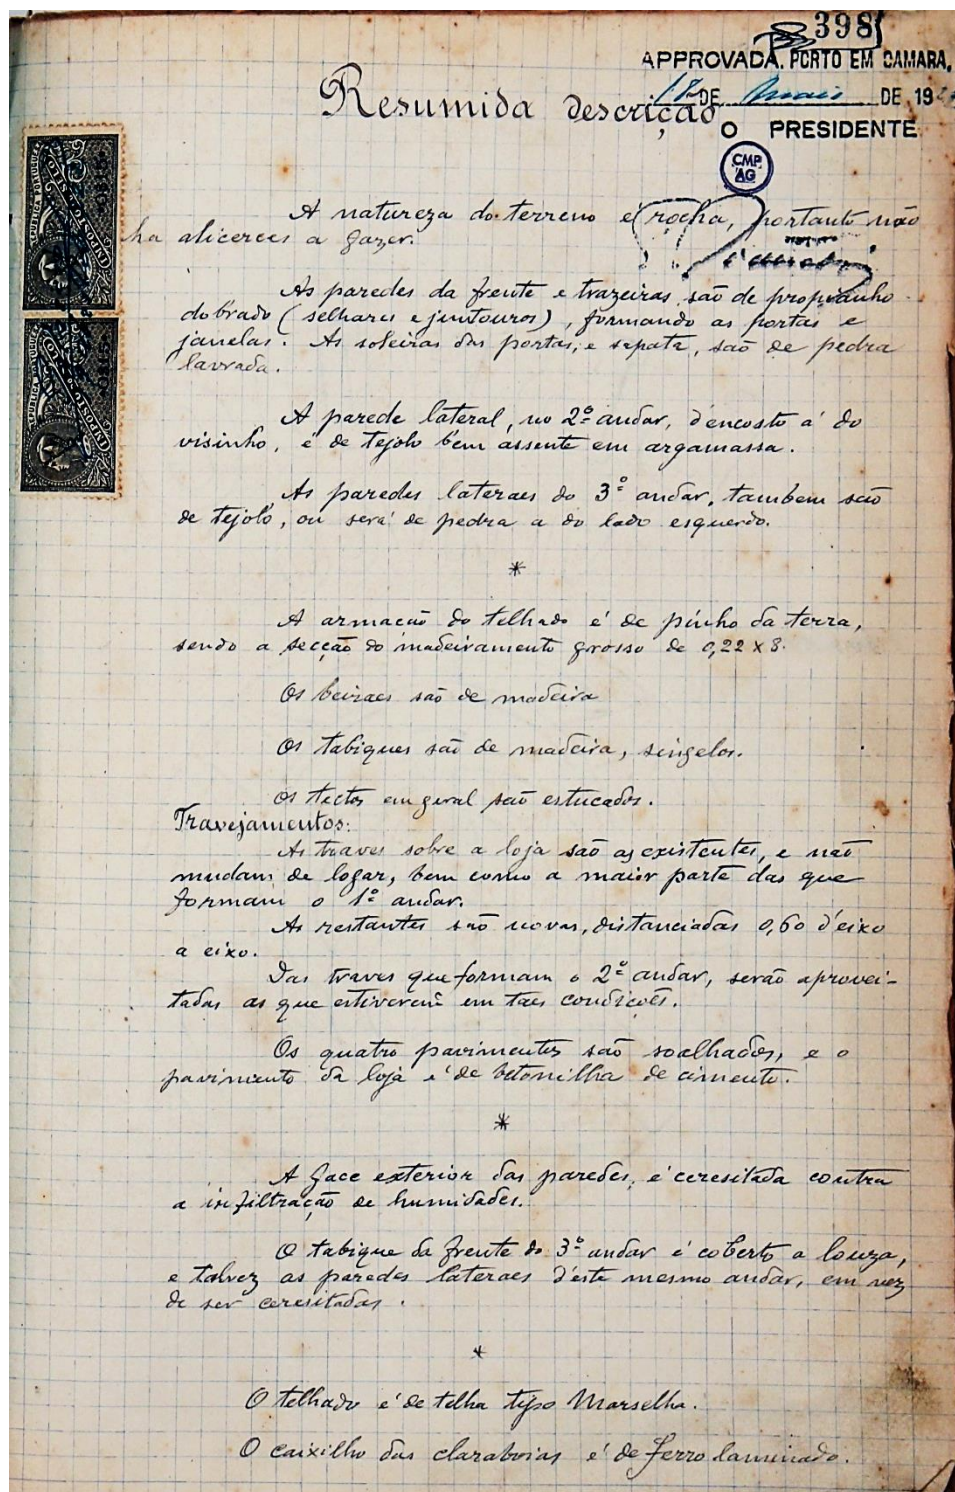 398
APPROVADA. PORTO EM CAMARA,
18 DE Maio DE 19
O PRESIDENTE
CMP
AG
Resumida descrição
A natureza do terreno é rocha, portanto não
ha alicerces a fazer.
As paredes da frente e trazeiras são de propianho
dobrado (selhares e juntouros), formando as portas e
janelas. As soleiras das portas, e sapata, são de pedra
lavrada.
A parede lateral, no 2º andar, d'encosto á do
visinho, é de tejolo bem assente em argamassa.
As paredes lateraes do 3º andar, tambem são
de tejolo, ou será de pedra a do lado esquerdo.
*
A armacão do telhado é de pinho da terra,
sendo a secção do madeiramento grosso de 0,22 x 8.
Os beiraes são de madeira
Os tabiques são de madeira, singelos.
Os tectos em geral são estucados.
Travejamentos:
As traves sobre a loja são as existentes, e não
mudam de logar, bem como a maior parte das que
formam o 1º andar.
As restantes são novas, distanciadas 0,60 d'eixo
a eixo.
Das traves que formam o 2º andar, serão aprovei-
tadas as que estiverem em taes condicões.
Os quatro pavimentos são soalhados, e o
pavimento da loja é de betonilha de cimento.
*
A face exterior das paredes, é ceresitada contra
a infiltração de humidades.
O tabique da frente do 3º andar é coberto a louza,
e talvez as paredes lateraes d'este mesmo andar, em vez
de ser ceresitadas.
*
O telhado é de telha typo Marselha.
O caixilho das claraboias é de ferro laminado.
REPUBLICA PORTUGUESA
IMPOSTO DO SELO
REPUBLICA PORTUGUESA
IMPOSTO DO SELO